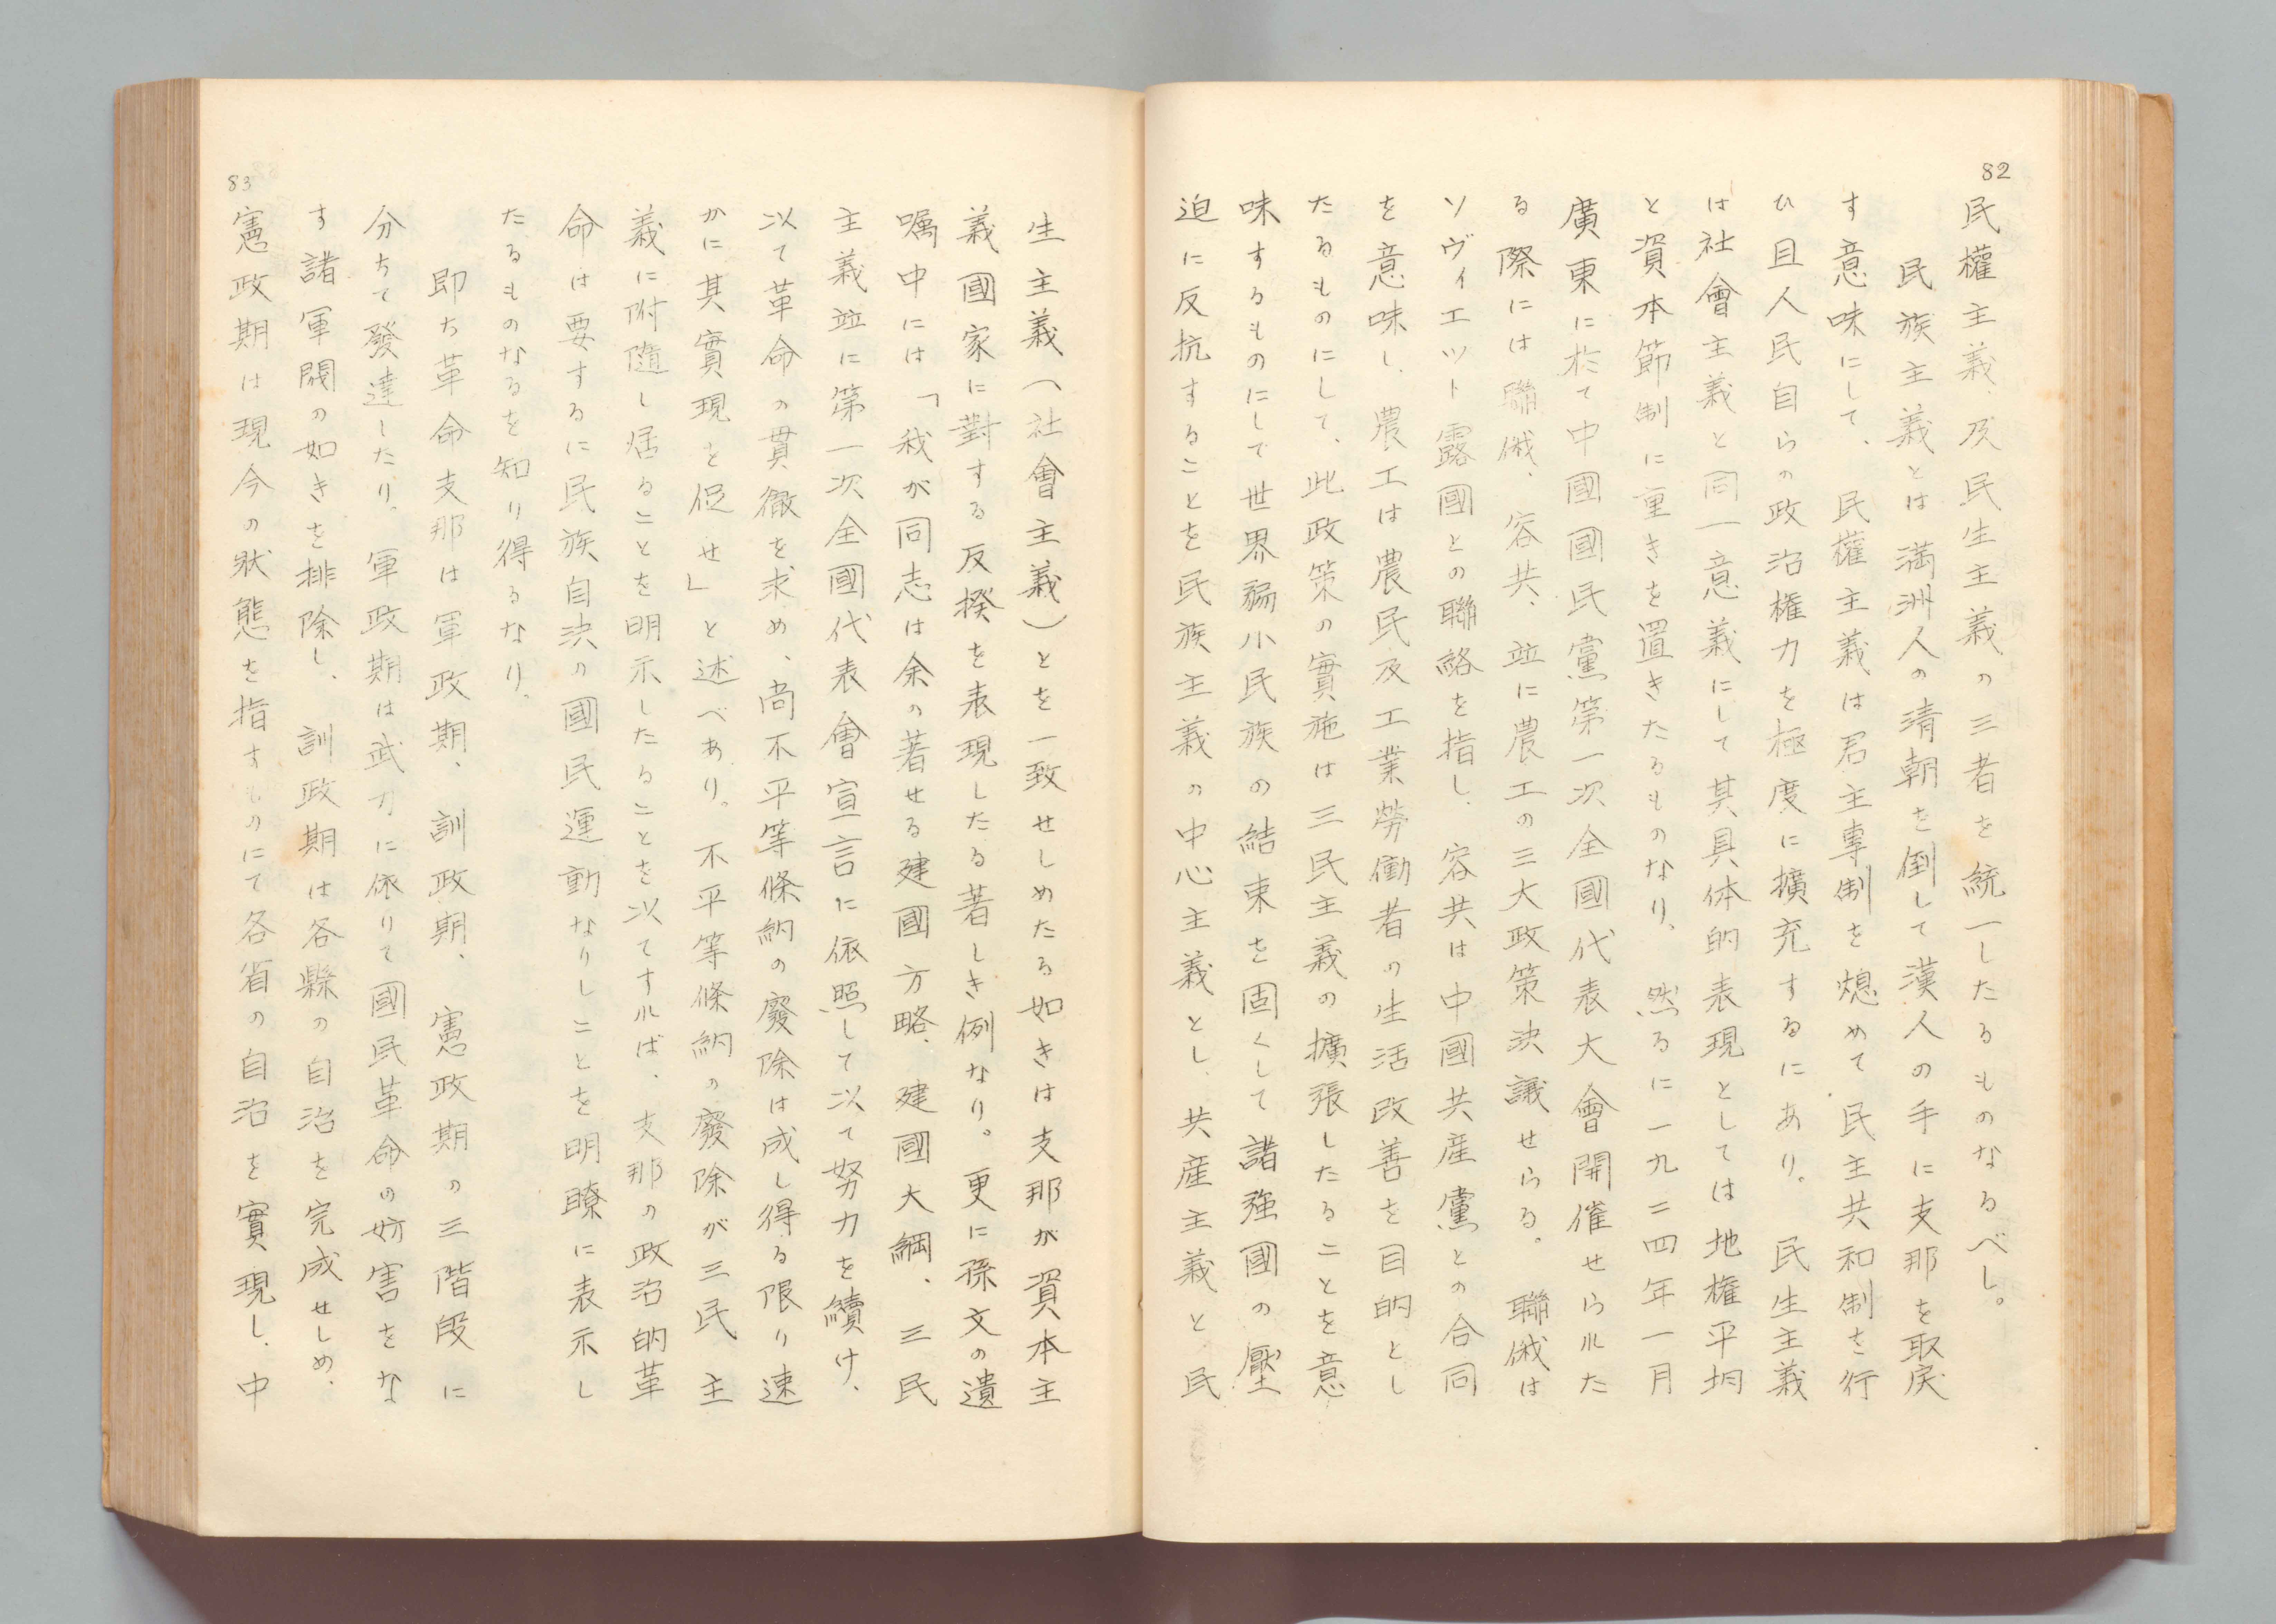 82
民權主義、及民生主義の三者を統一したるものなるべし。
民族主義とは満洲人の清朝を倒して漢人の手に支那を取戻
す意味にして、民權主義は君主專制を熄めて民主共和制を行
ひ且人民自らの政治権力を極度に擴充するにあり。民生主義
は社會主義と同一意義にして其具体的表現としては地権平均
と資本節制に重きを置きたるものなり。然るに一九二四年一月
廣東に於て中國國民黨第一次全國代表大會開催せられた
る際には聯俄、容共、竝に農工の三大政策決議せらる。聯俄は
ソヴィエツト露國との聯絡を指し、容共は中國共産黨との合同
を意味し、農工は農民及工業勞働者の生活改善を目的とし
たるものにして、此政策の實施は三民主義の擴張したることを意
味するものにして世界弱小民族の結束を固くして諸強國の壓
迫に反抗することを民族主義の中心主義とし、共産主義と民
生主義（社會主義）とを一致せしめたる如きは支那が資本主
義國家に對する反撥を表現したる著しき例なり。更に孫文の遺
囑中には「我が同志は余の著せる建國方略、建國大綱、三民
主義竝に第一次全國代表會宣言に依照して以て努力を續け、
以て革命の貫徹を求め、尚不平等條約の廢除は成し得る限り速
かに其實現を促せ」と述べあり。不平等條約の廢除が三民主
義に附隨し居ることを明示したることを以てすれば、支那の政治的革
命は要するに民族自決の國民運動なりしことを明瞭に表示し
たるものなるを知り得るなり。
即ち革命支那は軍政期、訓政期、憲政期の三階段に
分ちて發達したり。軍政期は武力に依りて國民革命の妨害をな
す諸軍閥の如きを排除し、訓政期は各縣の自治を完成せしめ、
憲政期は現今の狀態を指すものにて各省の自治を實現し、中
83